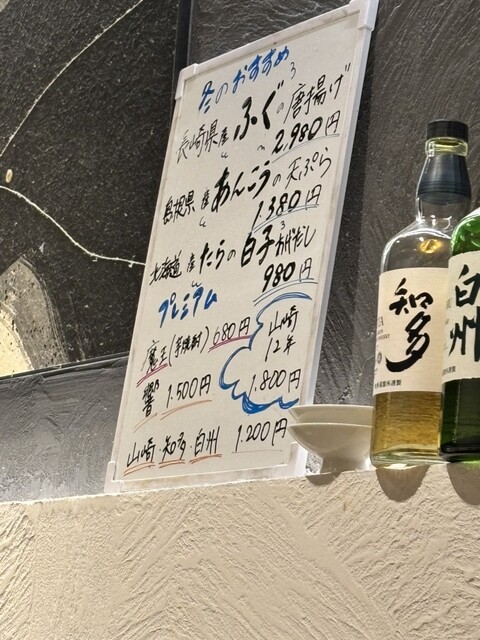 冬のおすすめ
長崎県産ふぐの唐揚げ
2,980円
島根県産あんこうの天ぷら
1.380円
北海道産たらの白子あげだし
980円
プレミアム
魔王(芋焼酎) 680円
響 1.500円
山崎
12年
1.800円
山崎・知多・白州 1.200円
知多
白州